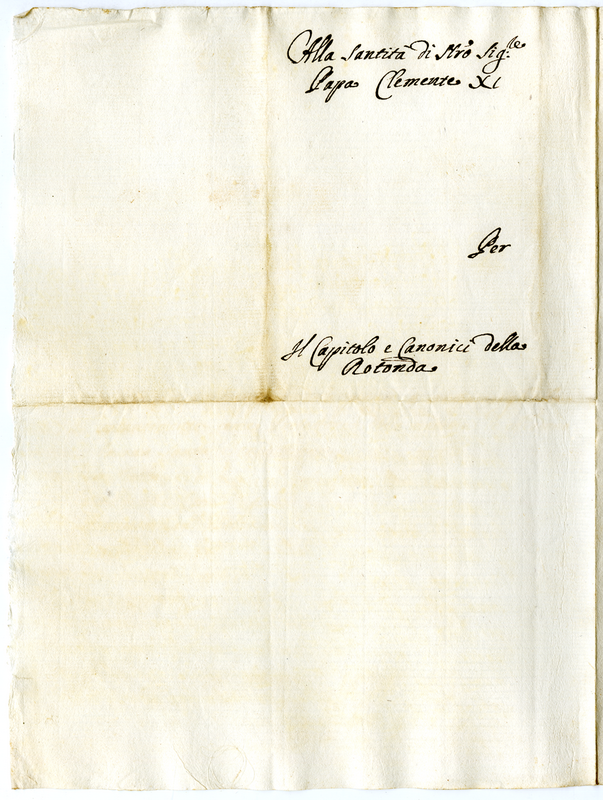 Alla Santita di Nrõ Sig.re
Papa Clemente XI
Per
Il Capitolo e Canonici della
Rotonda